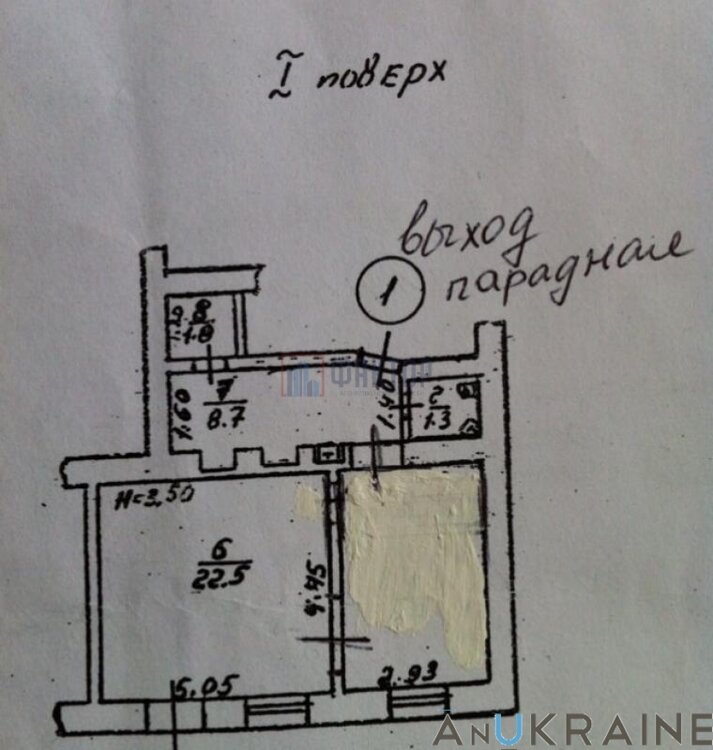 I поверх
выход
парадная
1
8
1.8
7
8.7
1.60
1.40
2
1.3
H=3,50
6
22.5
4.45
5.05
2.93
AnUkraine